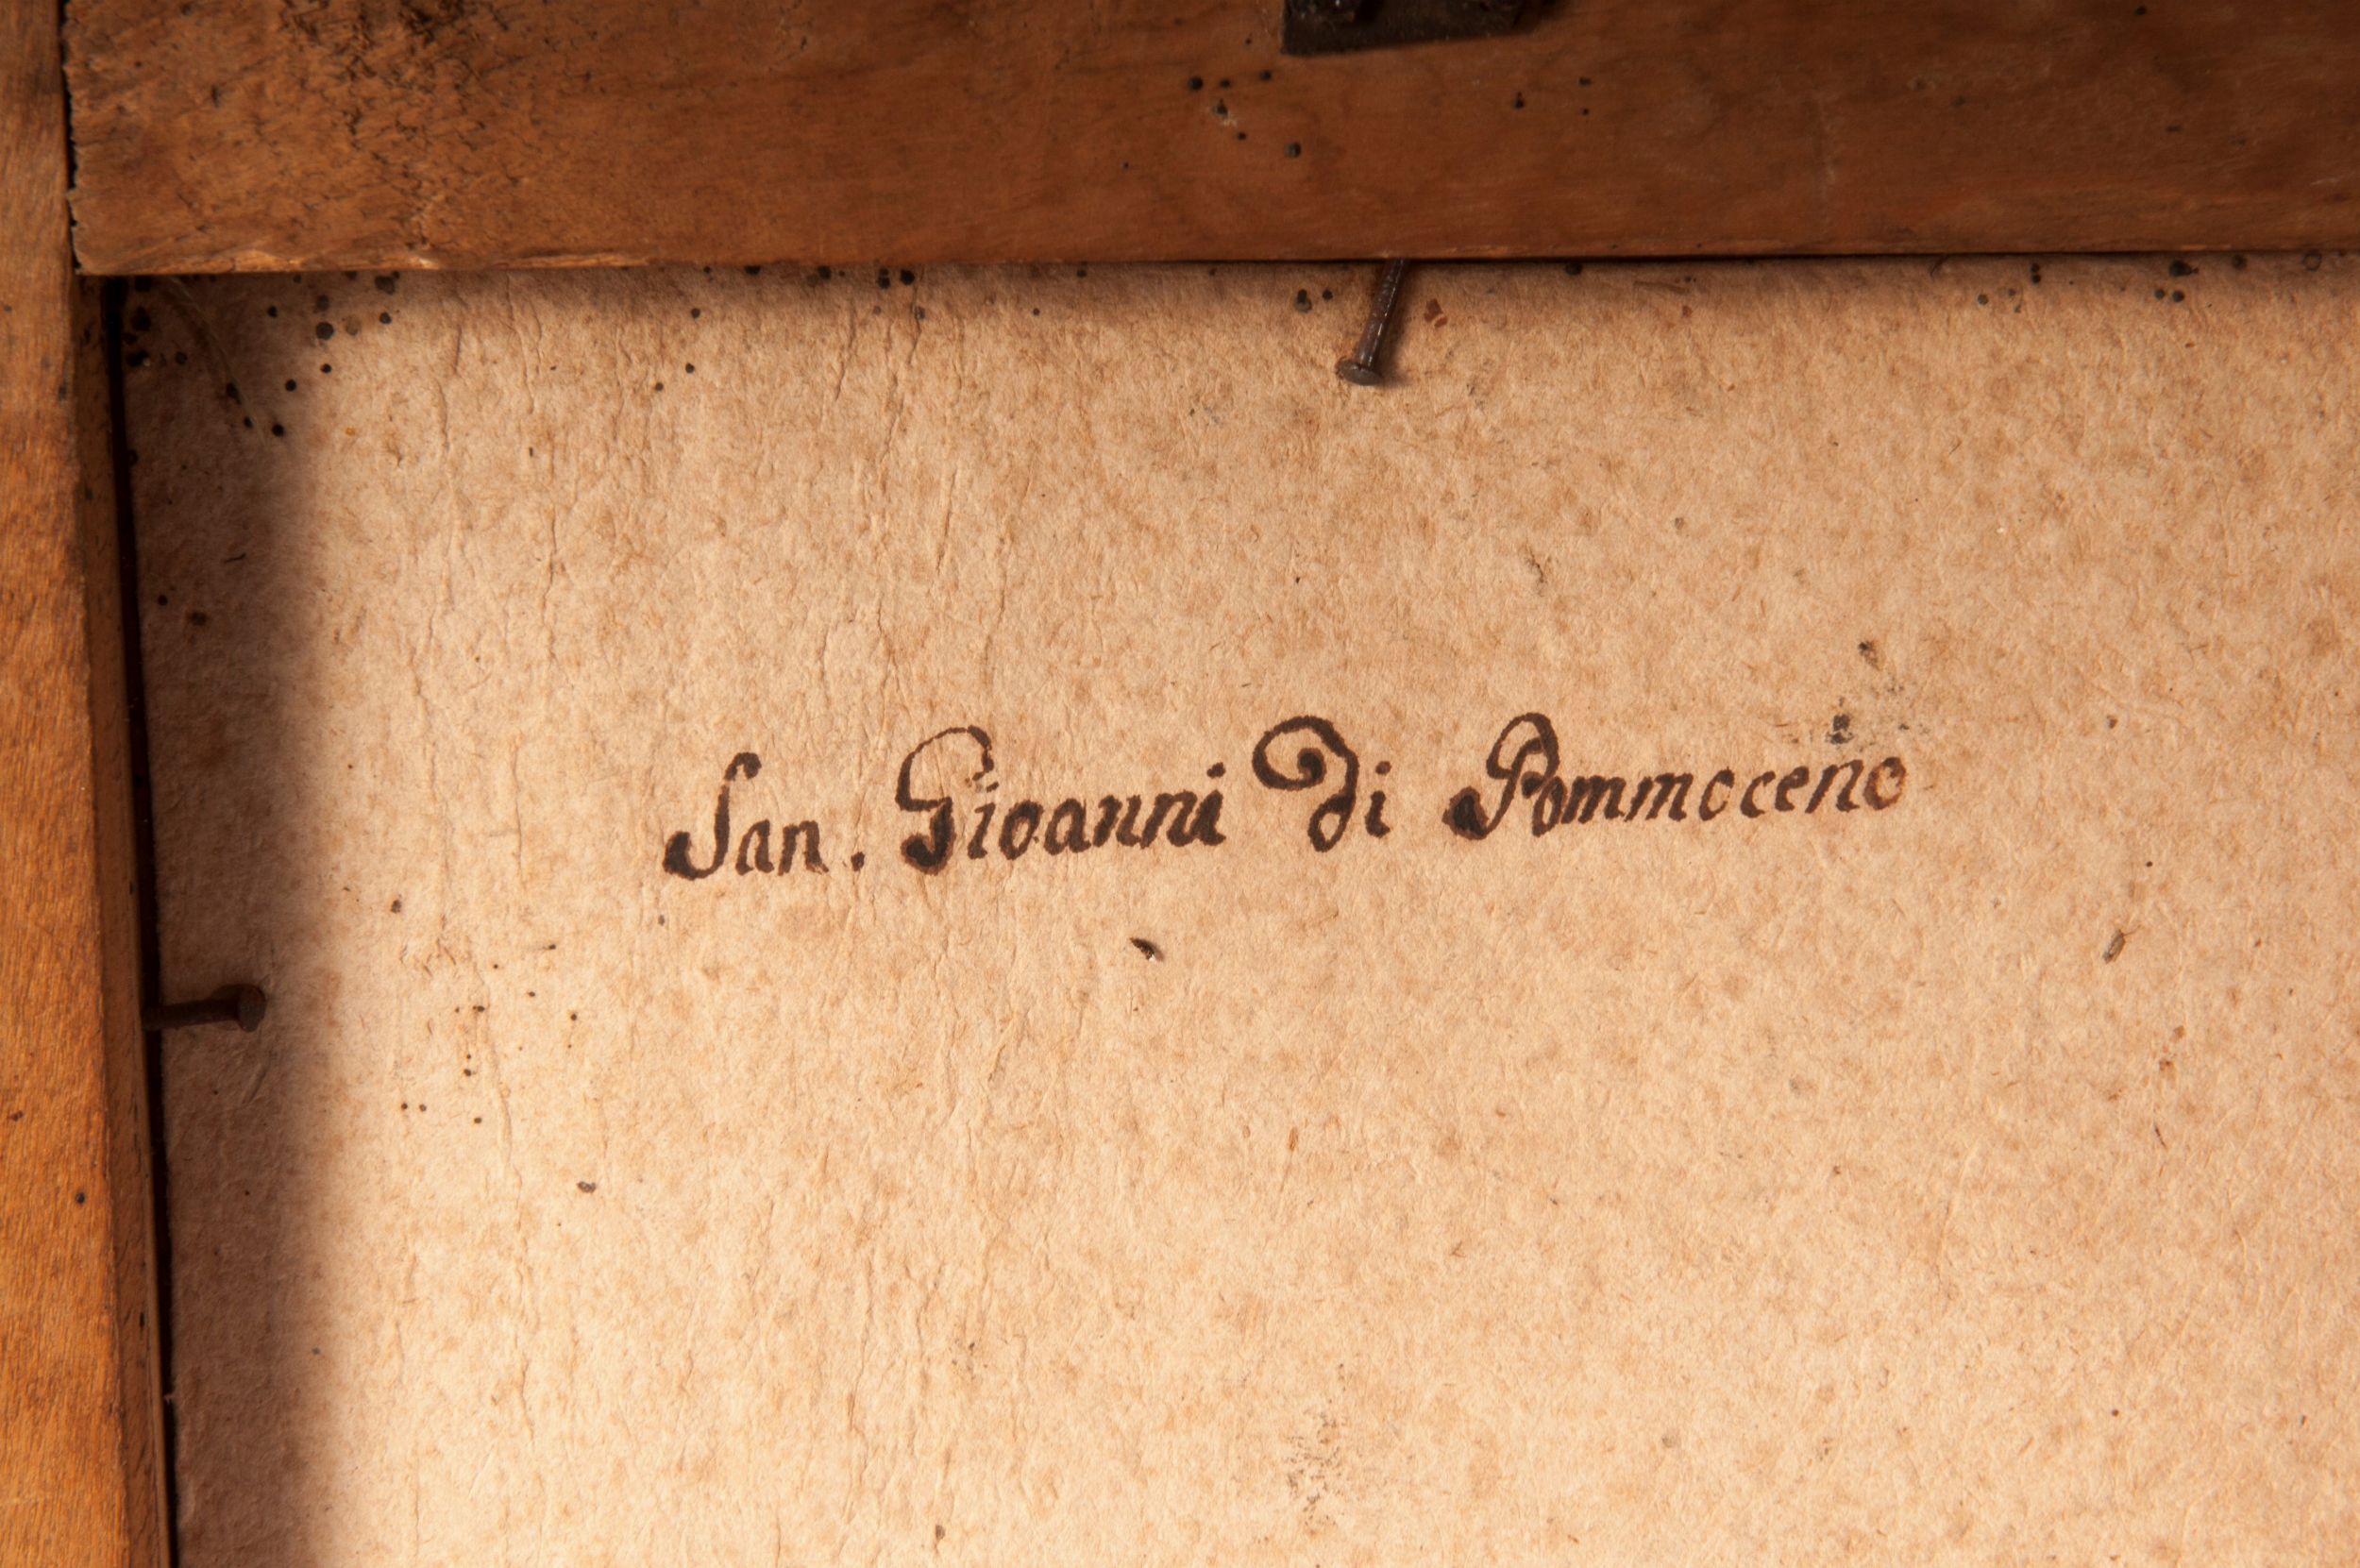 San. Gioanni Di Pommoceno